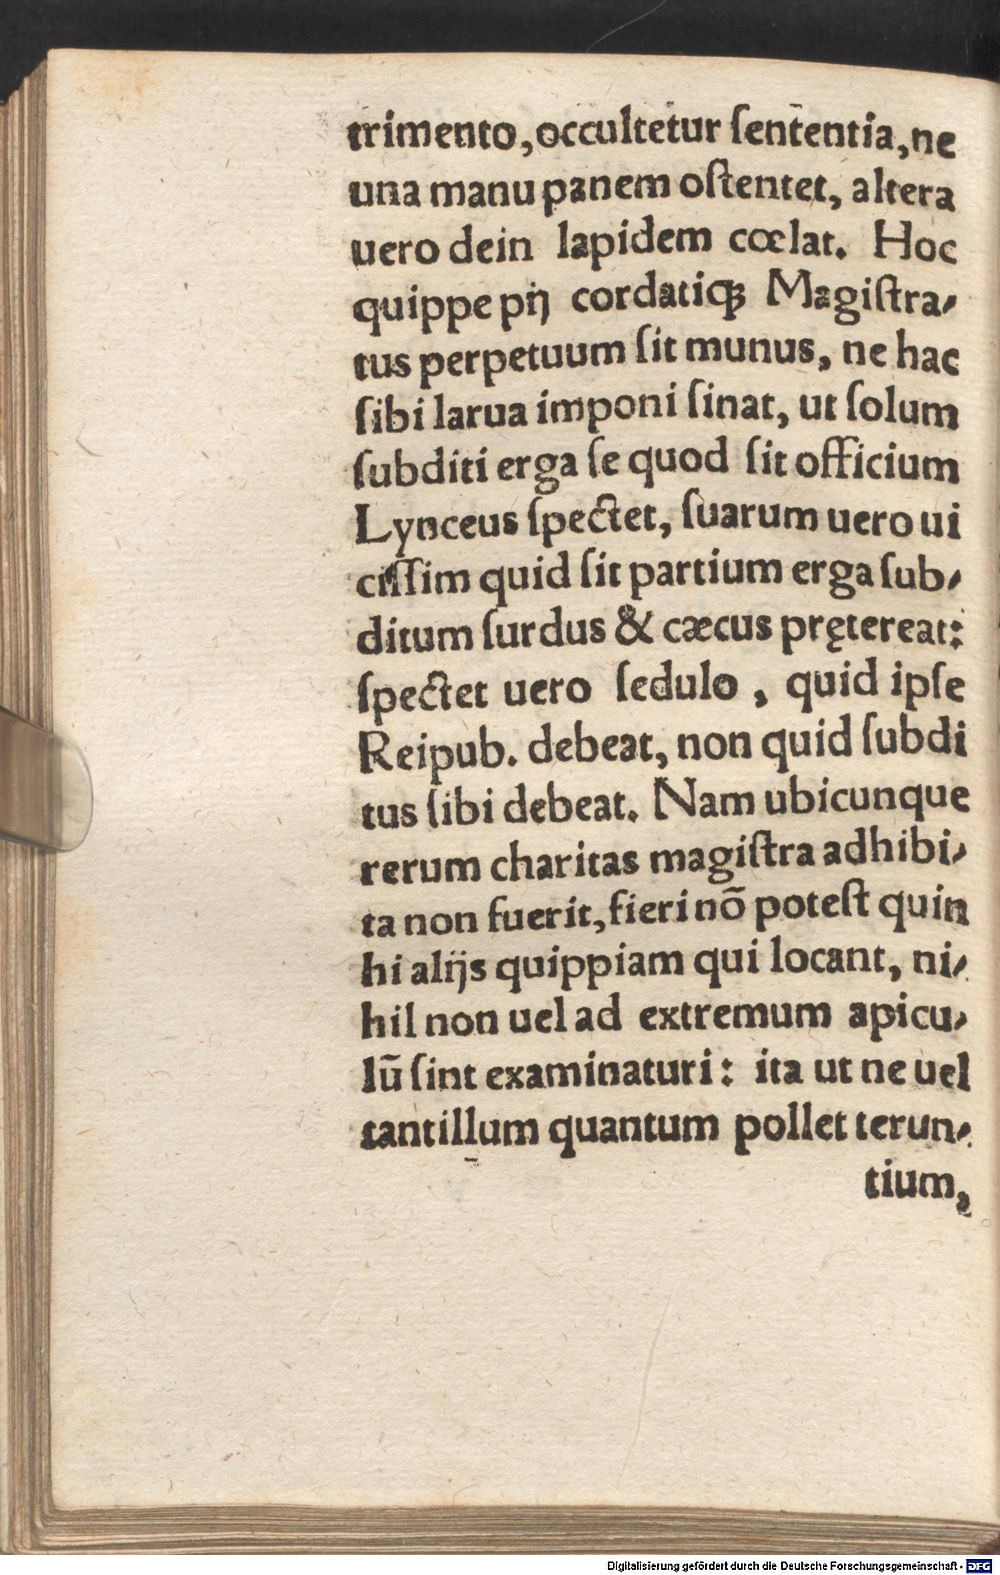 trimento, occultetur ſententia, ne
una manu panem oſtentet, altera
uero dein lapidem cœlat. Hoc
quippe pij cordatiq́ꝫ Magiſtra⸗
tus perpetuum ſit munus, ne hac
ſibi larua imponi ſinat, ut ſolum
ſubditi erga ſe quod ſit officium
Lynceus ſpectet, ſuarum uero ui
ciſſim quid ſit partium erga ſub⸗
ditum ſurdus & cæcus prętereat:
ſpectet uero ſedulo, quid ipſe
Reipub. debeat, non quid ſubdi
tus ſibi debeat. Nam ubicunque
rerum charitas magiſtra adhibi⸗
ta non fuerit, fieri nõ poteſt quin
hi alijs quippiam qui locant, ni⸗
hil non uel ad extremum apicu⸗
lũ ſint examinaturi: ita ut ne uel
tantillum quantum pollet terun⸗
tium,
Digitalisierung gefördert durch die Deutsche Forschungsgemeinschaft - DFG